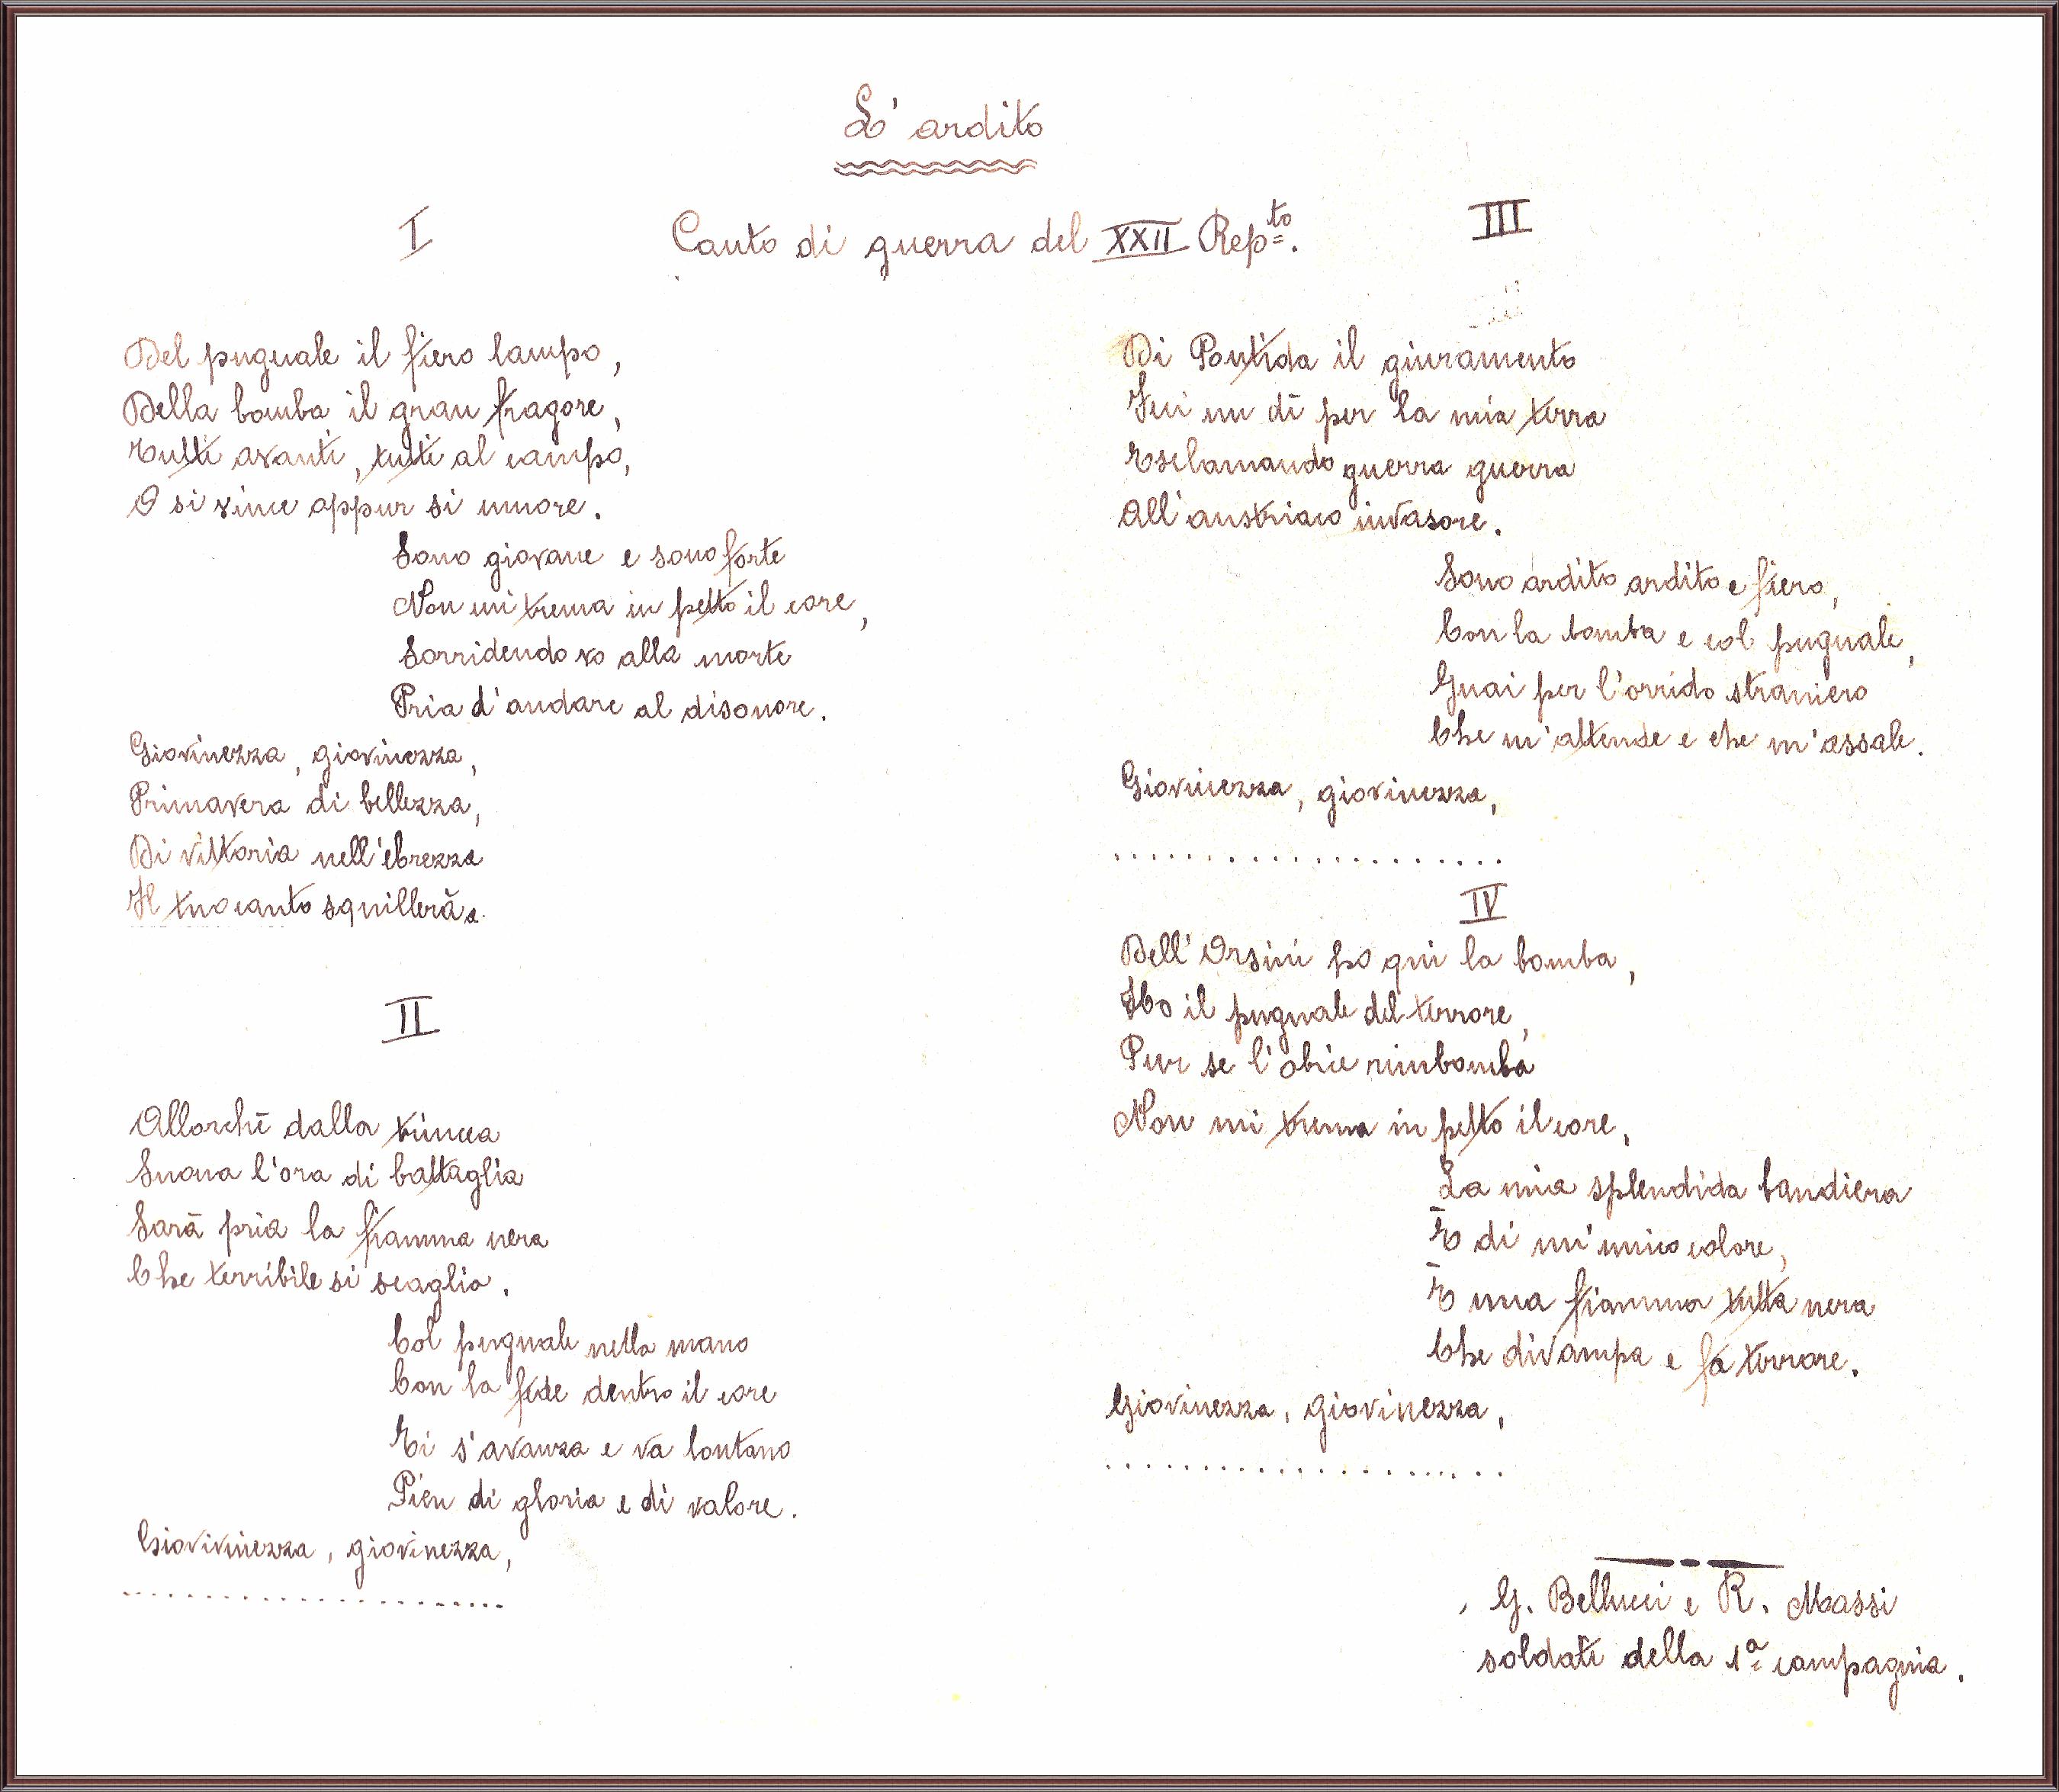 L'ardito
Canto di guerra del XXII Rep.to
I
Del pugnale il fiero lampo,
Della bomba il gran fragore,
Tutti avanti, tutti al campo,
O si vince oppur si muore.
Sono giovane e sono forte
Non mi trema in petto il core,
Sorridendo vo alla morte
Pria d'andare al disonore.
Giovinezza, giovinezza,
Primavera di bellezza,
Di vittoria nell'ebrezza
Il tuo canto squillerà.
II
Allorchè dalla trincea
Suona l'ora di battaglia
Sarà pria la fiamma nera
Che terribile si scaglia.
Col pugnale nella mano
Con la fede dentro il core
Ei s'avanza e va lontano
Pien di gloria e di valore.
Giovinezza, giovinezza,
......................
III
Di Pontida il giuramento
Fui un dì per la mia terra
Esclamando guerra guerra
All'austriaco invasore.
Sono ardito ardito e fiero,
Con la bomba e col pugnale,
Guai per l'orrido straniero
Che m'attende e che m'assale.
Giovinezza, giovinezza,
......................
IV
Dell'Orsini ho qui la bomba,
Ho il pugnale del terrore,
Pur se l'obice rimbomba
Non mi trema in petto il core,
La mia splendida bandiera
È di un'unico colore,
È una fiamma tutta nera
Che divampa e fa terrore.
Giovinezza, giovinezza,
......................
G. Bellucci e R. Massi
soldati della 1ª compagnia.